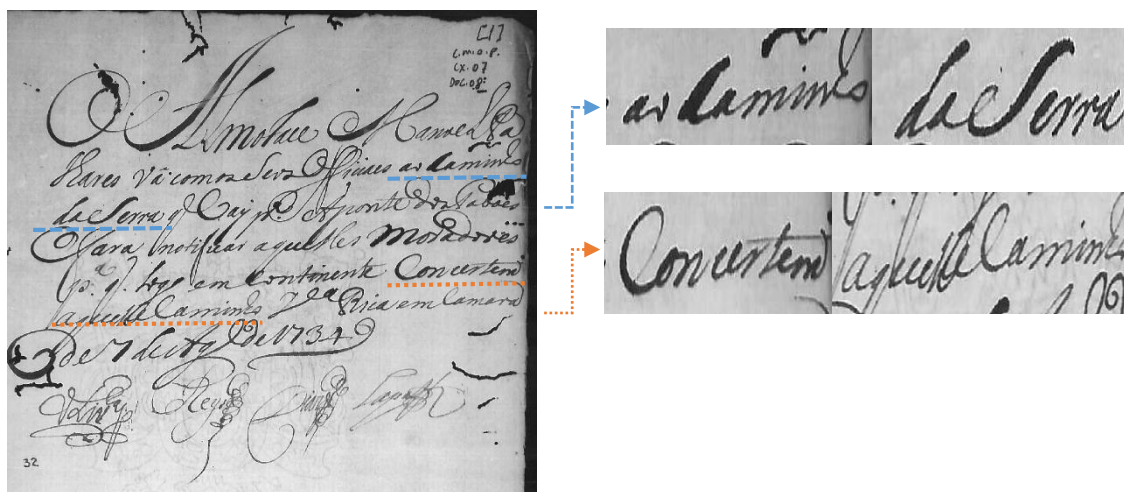 [1]
C.M.O.P.
CX.07
DOC.08
O Almotace Manoel
vá com os seos Officiaes ao Caminho
da Serra q. Cay p.a A ponte dos
Para Notificar aquelles moradores
p.a q. logo em continente Concertem
aquelle Caminho V.a Rica em Camara
de 7 de Ag.to de 1734
32
ao Caminho da Serra
Concertem aquelle Caminho